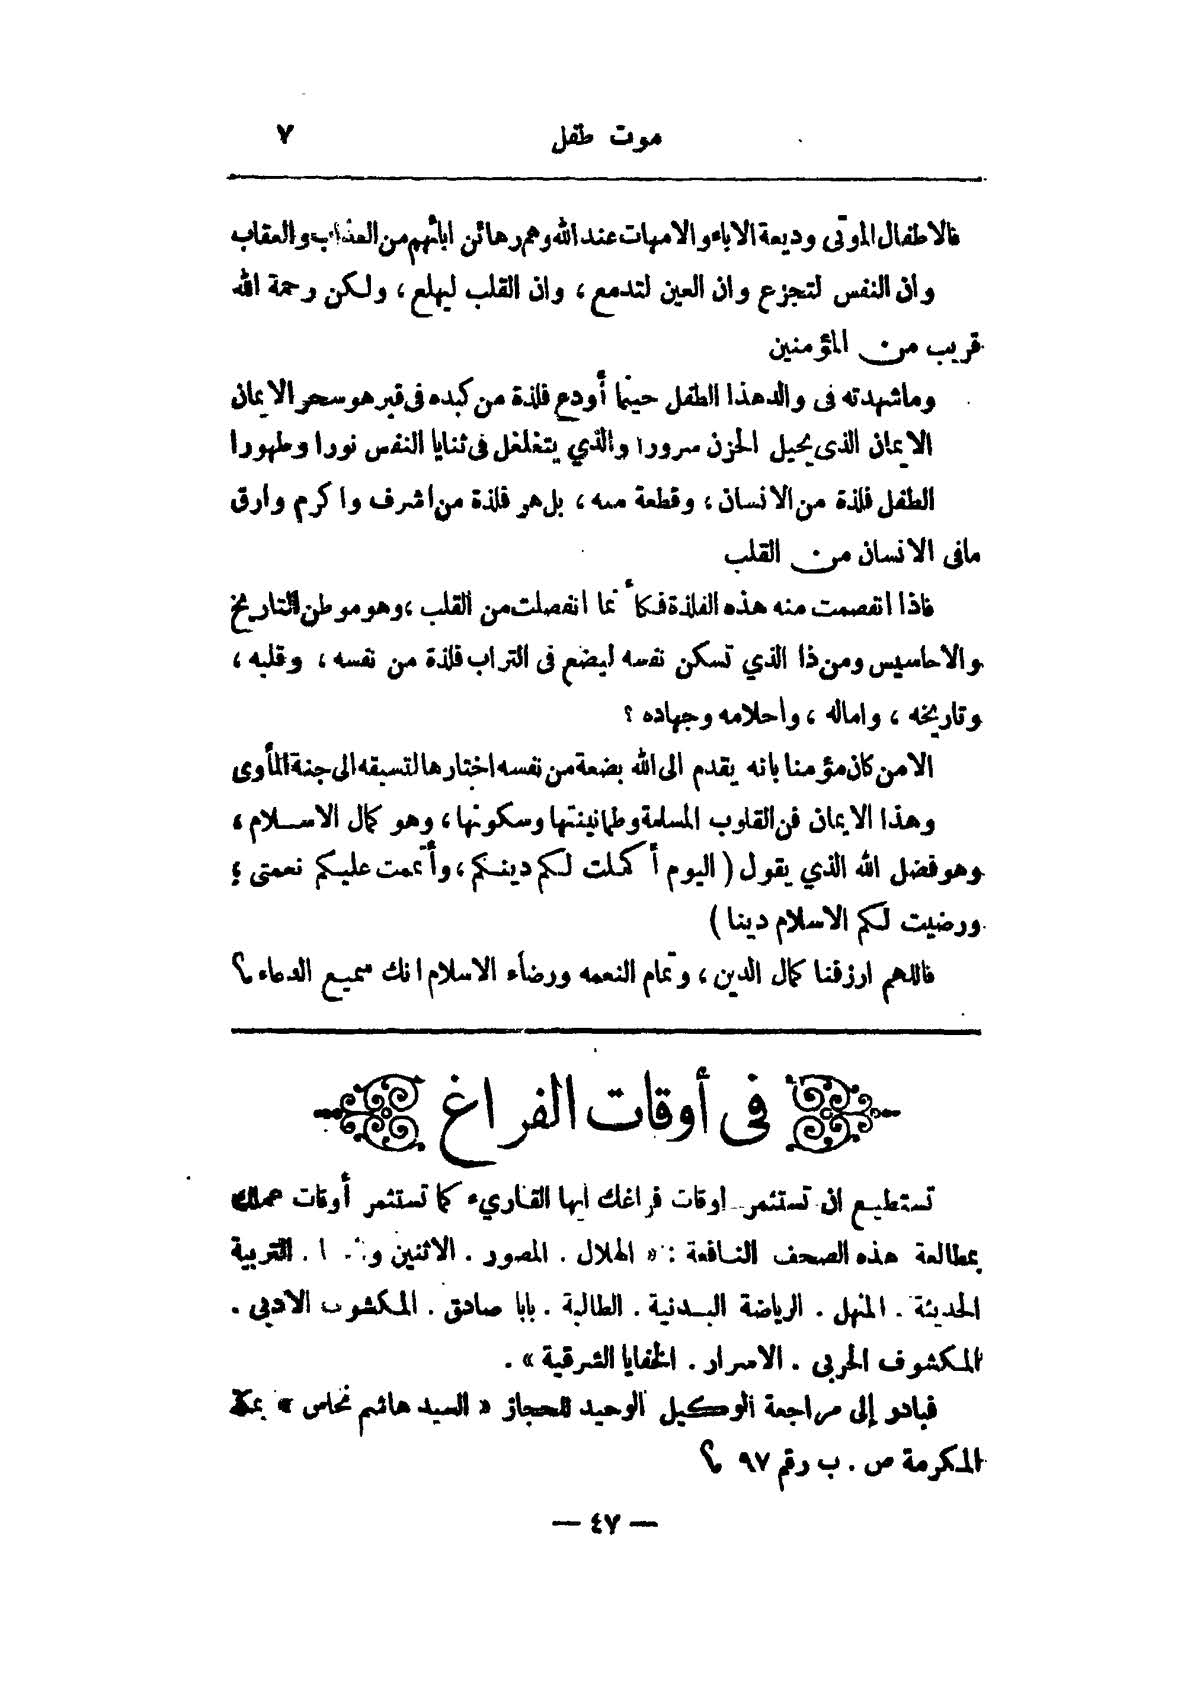 موت طفل ٧
فالاطفال الموتى وديعة الاباء والامهات عند الله وهم رهائن ابائهم من العذاب والعقاب
وان النفس لتجزع وان العين لتدمع ، وان القلب ليهلع ، ولكن رحمة الله
قريب من المؤمنين
وماشهدته فى والد هذا الطفل حينما أودع فلذة من كبده فى قبر هو سحر الايمان
الايمان الذى يحيل الحزن سرورا والذي يتغلغل فى ثنايا النفس نورا وطهورا
الطفل فلذة من الانسان ، وقطعة منه ، بل هو فلذة من اشرف واكرم وارق
مافى الانسان من القلب
فاذا انفصمت منه هذه الفلذة فكأنما انفصلت من القلب ، وهو موطن التاريخ
والاحاسيس ومن ذا الذي تسكن نفسه ليضع فى التراب فلذة من نفسه ، وقلبه ،
وتاريخه ، واماله ، واحلامه وجهاده ؟
الا من كان مؤمنا بانه يقدم الى الله بضعة من نفسه اختارها لتسبقه الى جنة المأوى
وهذا الايمان فن القلوب المسلمة وطمانينتها وسكونها ، وهو كمال الاسلام ،
وهو فضل الله الذي يقول ( اليوم أكملت لكم دينكم ، وأتممت عليكم نعمتى ؛
ورضيت لكم الاسلام دينا )
فاللهم ارزقنا كمال الدين ، وتمام النعمه ورضاء الاسلام انك سميع الدعاء ؟
فى أوقات الفراغ
تستطيع ان تستثمر اوقات فراغك ايها القاريء كما تستثمر أوقات عملك
بمطالعة هذه الصحف النافعة : « الهلال . المصور . الاثنين . التربية
الحديثة . المنهل . الرياضة البدنية . الطالبة . بابا صادق . المكشوف الادبى .
المكشوف الحربى . الاسرار . الخفايا الشرقية » .
فبادر إلى مراجعة الوكيل الوحيد للحجاز « السيد هاشم نحاس » بمكة
المكرمة ص . ب رقم ٩٧ ؟
— ٤٧ —